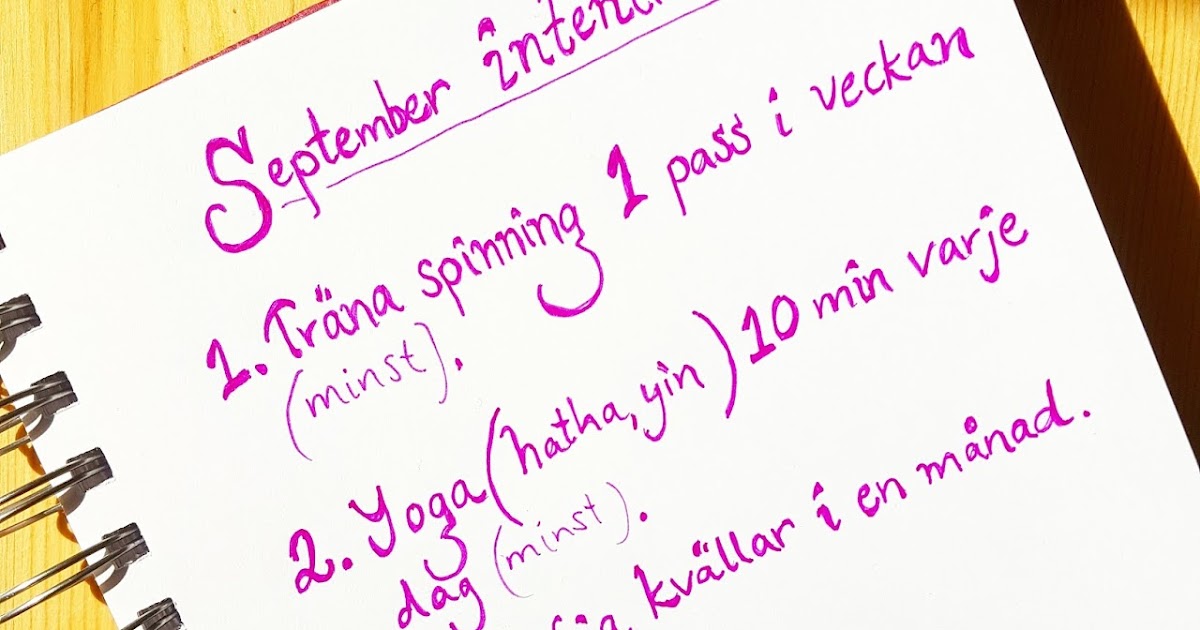 September
1. Träna spinning 1 pass i veckan
(minst).
2. Yoga (hatha, yin) 10 min varje
dag (minst).
kvällar i en månad.